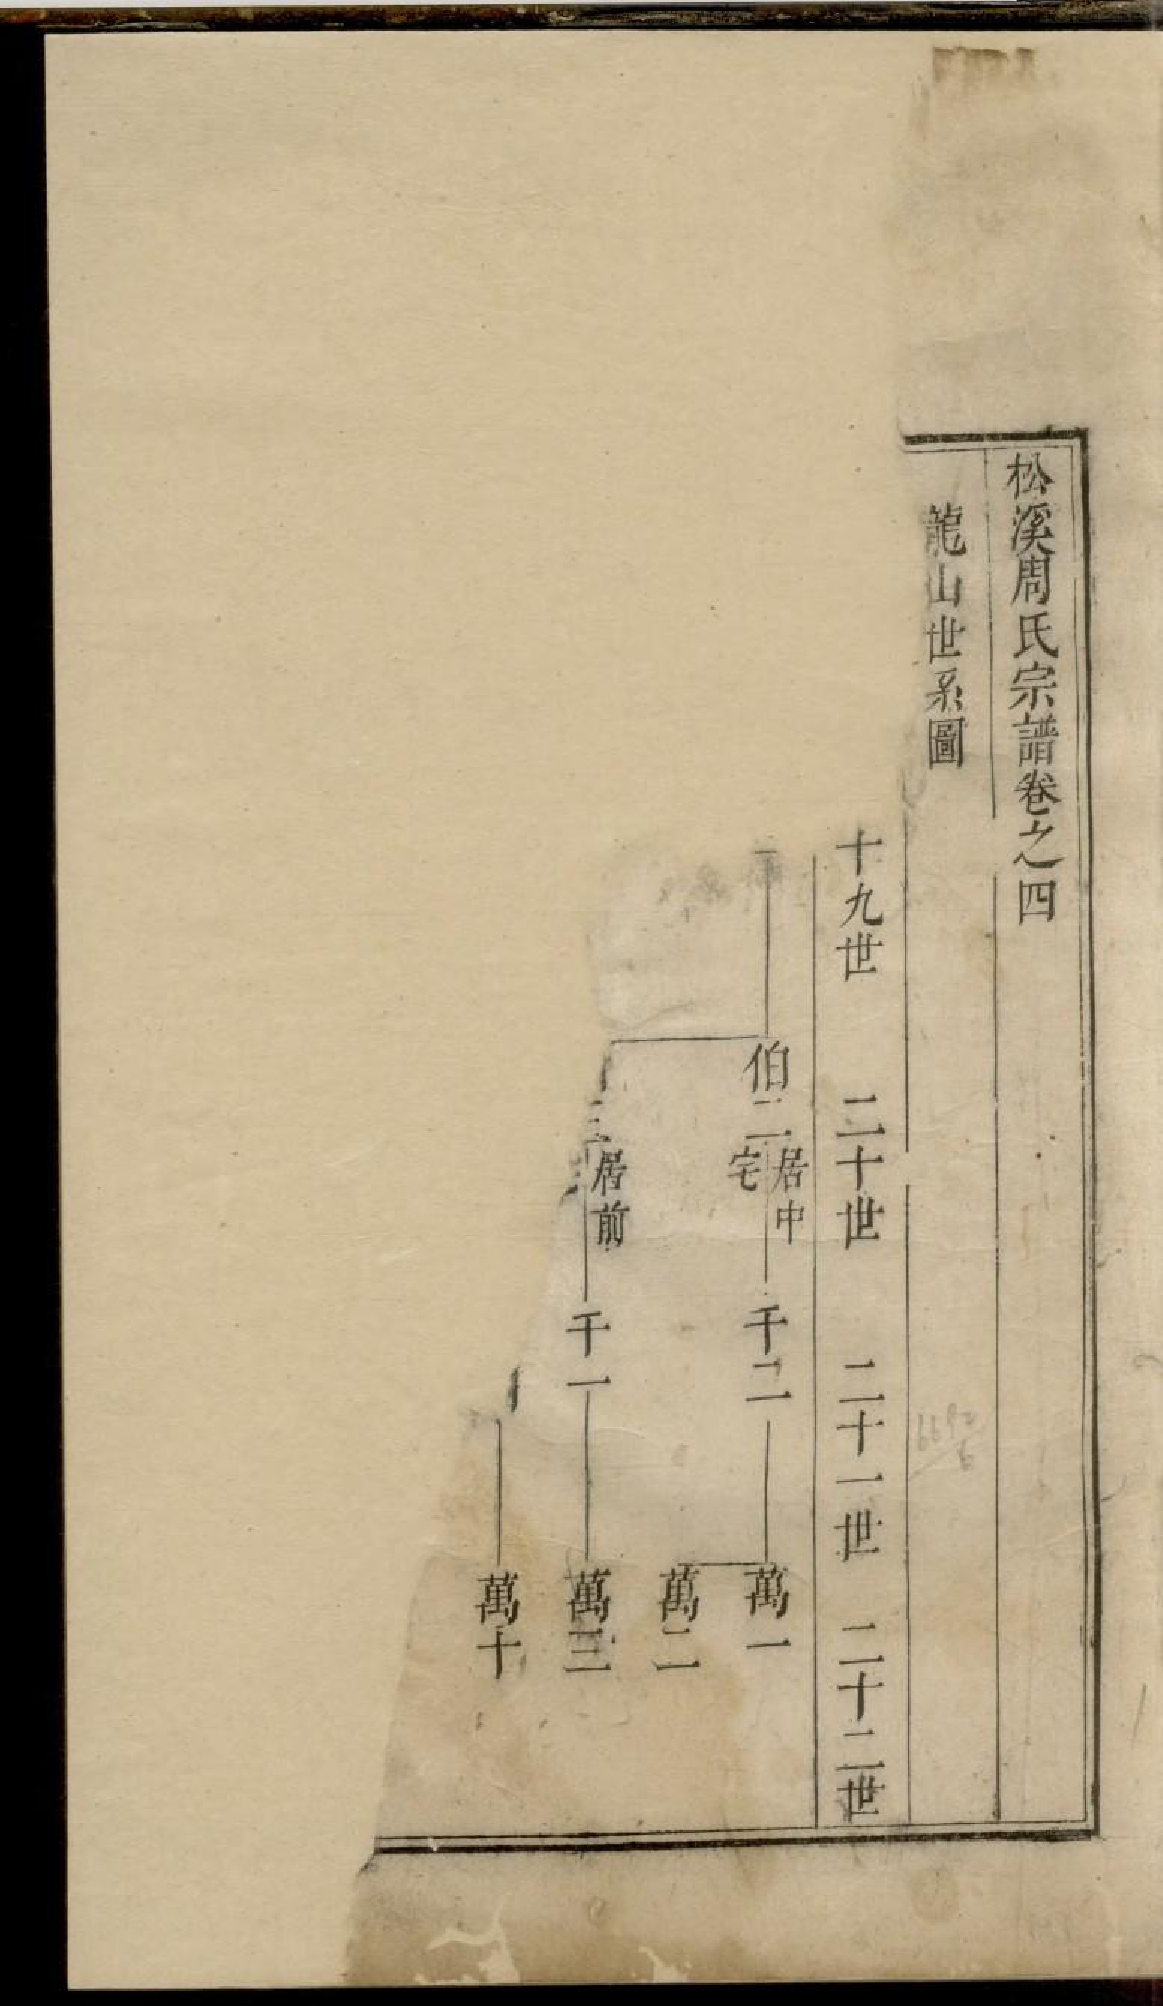 松溪周氏宗譜卷之四
龍山世系圖
十九世 二十世 二十一世 二十二世
伯二 居中宅 千二 萬一
萬二
三 居前 千一 萬三
萬十